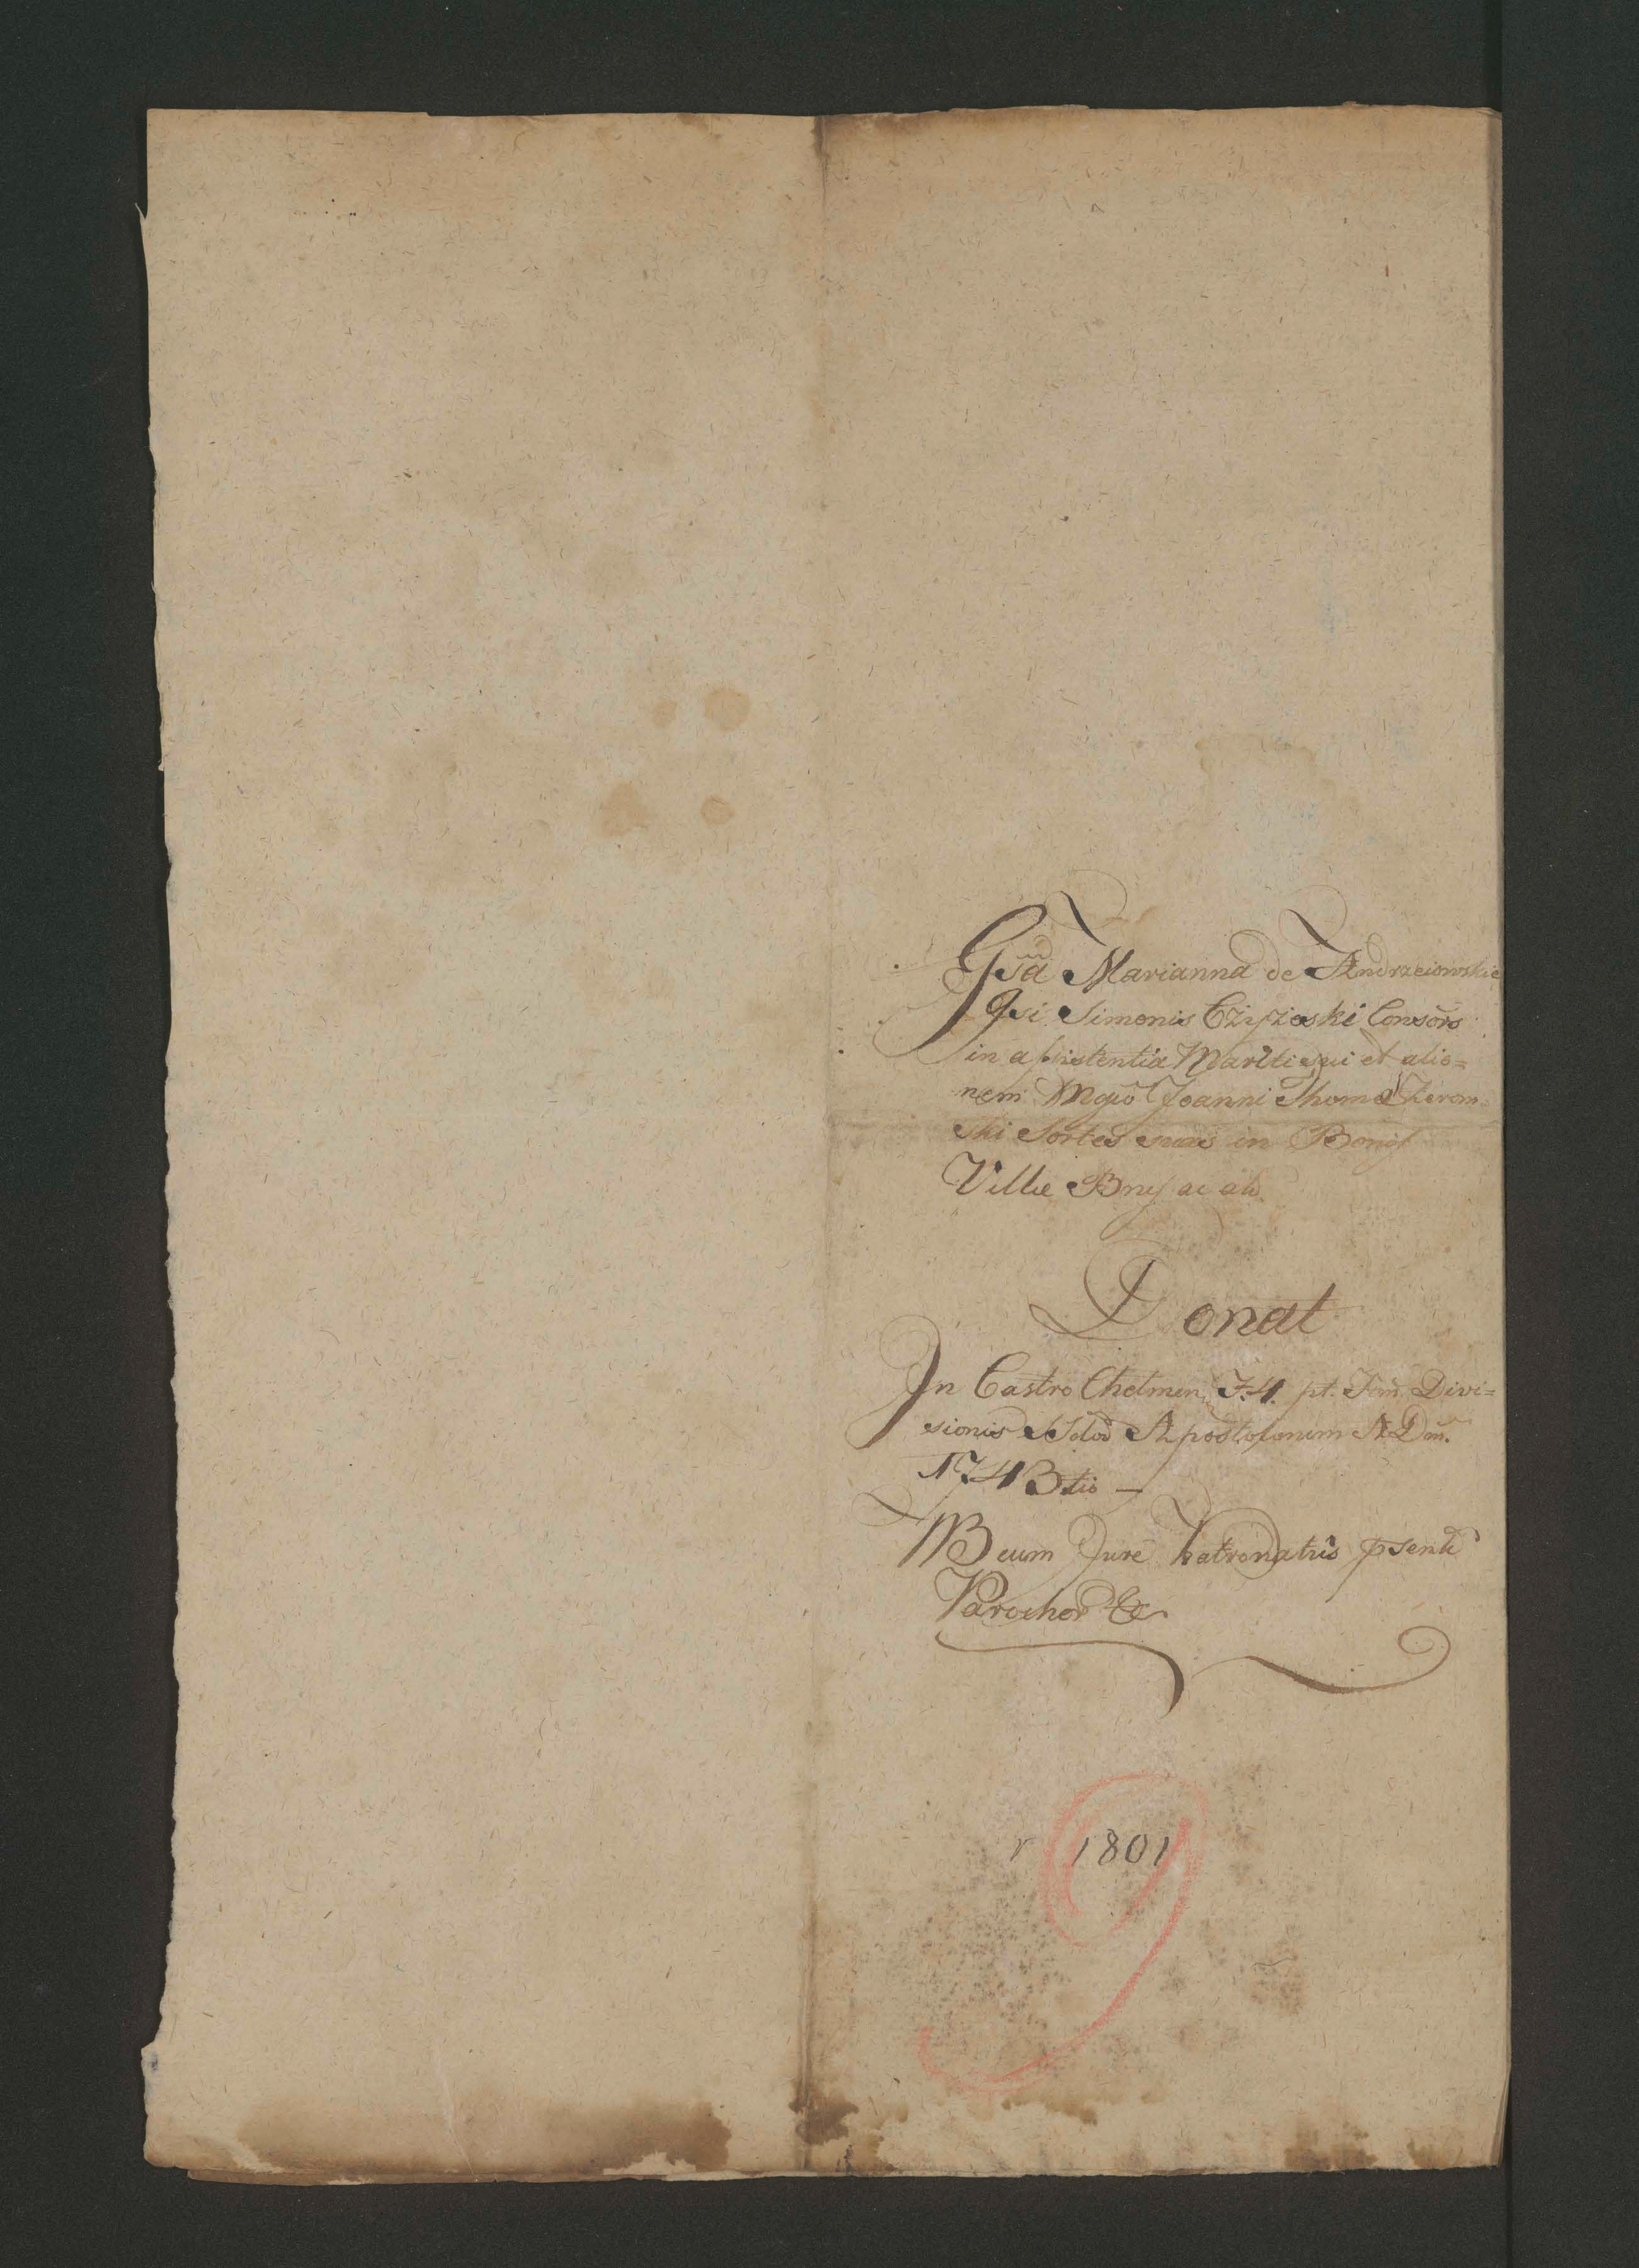 Gsa Marianna de Andrzeiowskie
Gsi Simonis Consors
in assistentia Mariti sui et alio=
nem Mgco Joanni Thoma Żerom=
ski Sortes suas in Bonis
Villæ Brus ac al.
Donat
In Castro Chelmen. F. 4. pt. Fest. Divi=
sionis SS. Apostolorum A. Dni.
1743tio —
NB cum Jure Patronatus psente
Parochor &c
r 1801
9